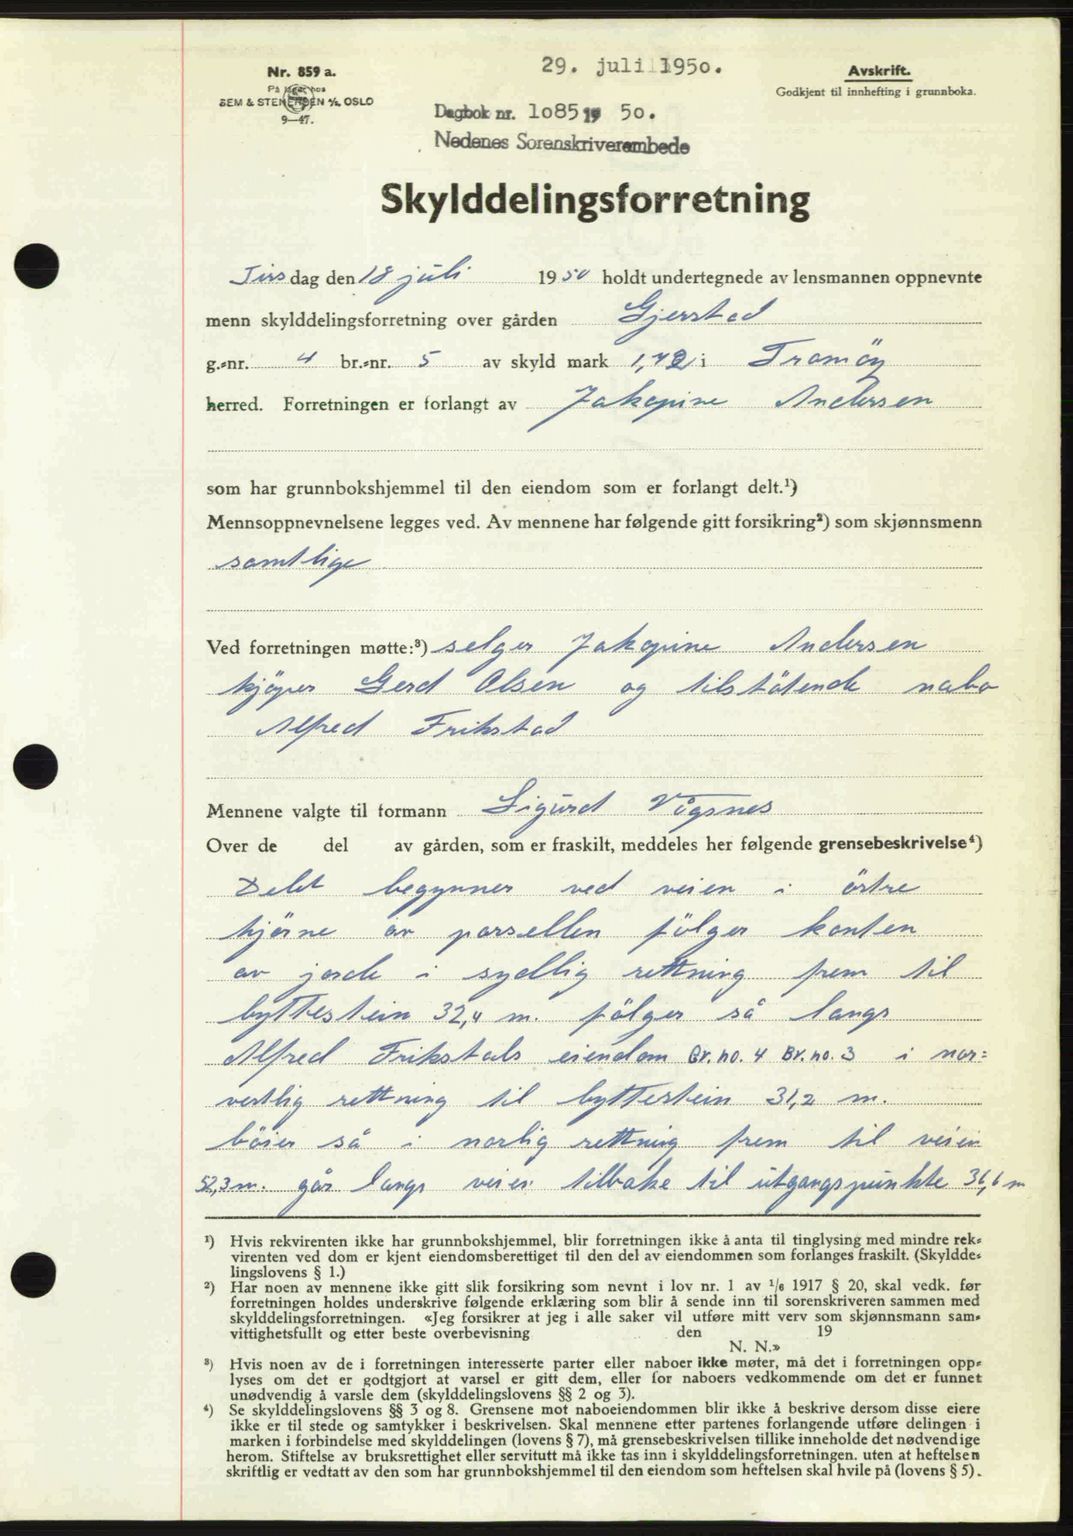 Nr. 859 a.
På lager hos
SEM & STENERSEN A/S, OSLO
9—47.
29. juli 1950.
Dagbok nr. 1085 19 50.
Nedenes Sorenskriverembede
Avskrift.
Godkjent til innhefting i grunnboka.
Skylddelingsforretning
Tirsdag den 18 juli 1950 holdt undertegnede av lensmannen oppnevnte
menn skylddelingsforretning over gården Gjerstad
g.-nr. 4 br.-nr. 5 av skyld mark 1,72 i Tromöy
herred. Forretningen er forlangt av Jakopine Andersen
som har grunnbokshjemmel til den eiendom som er forlangt delt.¹)
Mennsoppnevnelsene legges ved. Av mennene har følgende gitt forsikring²) som skjønnsmenn
samtlige
Ved forretningen møtte:³) selger Jakopine Andersen
kjöper Gerd Olsen og tilstötende nabo
Alfred Frikstad
Mennene valgte til formann Sigurd Vågsnes
Over de del av gården, som er fraskilt, meddeles her følgende grensebeskrivelse⁴)
Delet begynner ved veien i östre
hjörne av parsellen fölger kanten
av jorde i sydlig rettning frem til
byttestein 32,4 m. fölger så langs
Alfred Frikstads eiendom Gr. no. 4 Br. no. 3 i nor=
vestlig rettning til byttestein 31,2 m.
böier så i norlig rettning frem til veien
52,3 m. går langs veien tilbake til utgangspunkte 36,6 m
¹) Hvis rekvirenten ikke har grunnbokshjemmel, blir forretningen ikke å anta til tinglysing med mindre rek-
virenten ved dom er kjent eiendomsberettiget til den del av eiendommen som forlanges fraskilt. (Skyldde-
lingslovens § 1.)
²) Har noen av mennene ikke gitt slik forsikring som nevnt i lov nr. 1 av 1/6 1917 § 20, skal vedk. før
forretningen holdes underskrive følgende erklæring som blir å sende inn til sorenskriveren sammen med
skylddelingsforretningen. «Jeg forsikrer at jeg i alle saker vil utføre mitt verv som skjønnsmann sam-
vittighetsfullt og etter beste overbevisning den 19
N. N.»
³) Hvis noen av de i forretningen interesserte parter eller naboer ikke møter, må det i forretningen opp-
lyses om det er godtgjort at varsel er gitt dem, eller for naboers vedkommende om det er funnet
unødvendig å varsle dem (skylddelingslovens §§ 2 og 3).
⁴) Se skylddelingslovens §§ 3 og 8. Grensene mot naboeiendommen blir ikke å beskrive dersom disse eiere
ikke er til stede og samtykker i beskrivelsen. Skal mennene etter partenes forlangende utføre delingen i
marken i forbindelse med skylddelingen (lovens § 7), må grensebeskrivelsen tillike inneholde det nødvendige
herom. Stiftelse av bruksrettighet eller servitutt må ikke tas inn i skylddelingsforretningen. uten at heftelsen
skriftlig er vedtatt av den som har grunnbokshjemmel til den eiendom som heftelsen skal hvile på (lovens § 5).